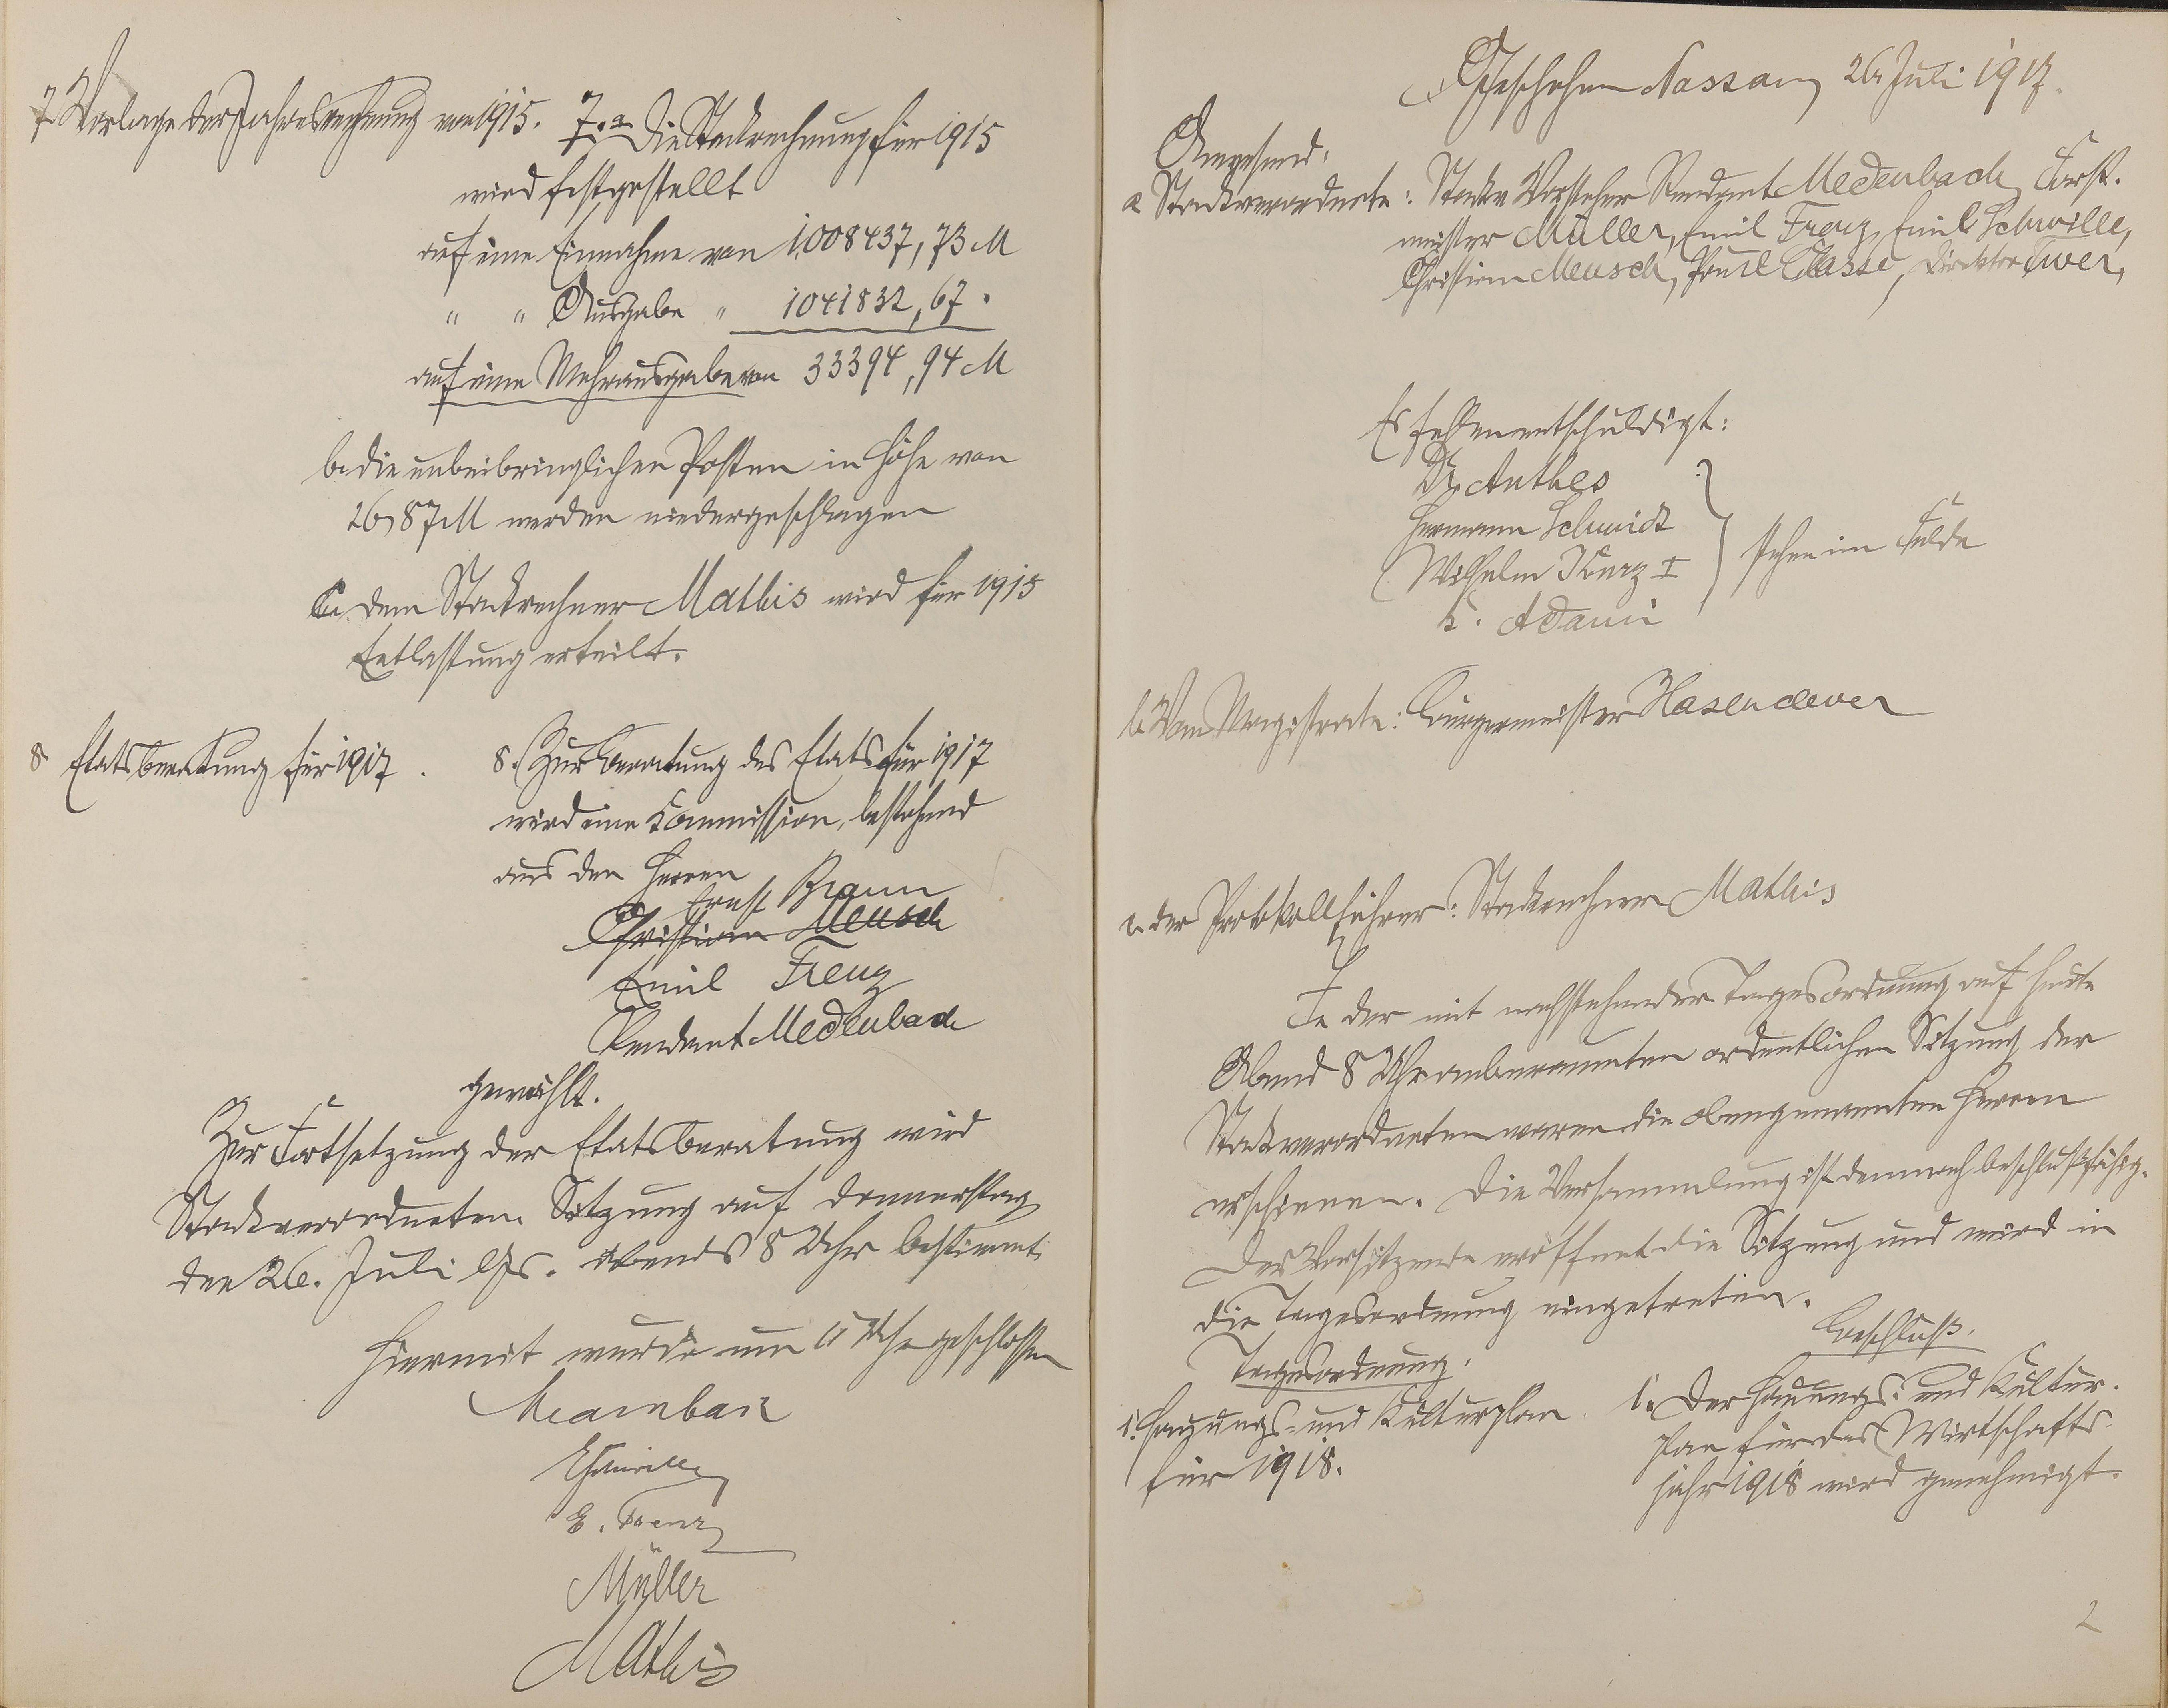 7 Vorlage der Jahresrechnung von 1915.
7. a Die Stadtrechnung für 1915
wird festgestellt
auf eine Einnahme von 1008437,73 M
" " Ausgabe " 1041832,67 "
auf eine Mehrausgabe von 33394,94 M
b. die unbeibringlichen Posten in Höhe von
26,87 M werden niedergeschlagen
c. dem Stadtrechner Mathis wird für 1915
Entlastung erteilt.
8 Etatsberatung für 1917.
8. Zur Beratung des Etats für 1917
wird eine Kommission, bestehend
aus den Herren
Ernst Braun
Christian Meusch
Emil Frenz
Rendant Medenbach
gewählt.
Zur Fortsetzung der Etatsberatung wird
Stadtverordneten Sitzung auf Donnerstag
den 26. Juli lfs. abends 8 Uhr bestimmt
Hiermit wurde um 11 Uhr geschlossen
Medenbach
E Schwille
E. Frenz
Müller
Mathis
Geschehen Nassau, 26 Juli 1917.
Anwesend.
a Stadtverordnete: Stadtv Vorsteher Rendant Medenbach, Forst-
meister Müller, Emil Frenz, Emil Schwille,
Christian Meusch, Paul Classe, Direktor Twer,
Es fehlen entschuldigt:
Dr. Anthes
Hermann Schmidt
Wilhelm Kurz I
stehen im Felde
K. Adami
b. Vom Magistrate: Bürgermeister Hasenclever
c. der Protokollführer: Stadtrechner Mathis
In der mit nachstehender Tagesordnung auf heute
Abend 8 Uhr anberaumten ordentlichen Sitzung der
Stadtverordneten waren die obengenannten Herren
erschienen. Die Versammlung ist demnach beschlußfähig.
Der Vorsitzende eröffnet die Sitzung und wird in
die Tagesordnung eingetreten.
Tagesordnung.
Beschluß.
1. Hauungs- und Kulturplan
für 1918.
1. Der Hauungs- und Kultur-
plan für das Wirtschafts-
jahr 1918 wird genehmigt.
2